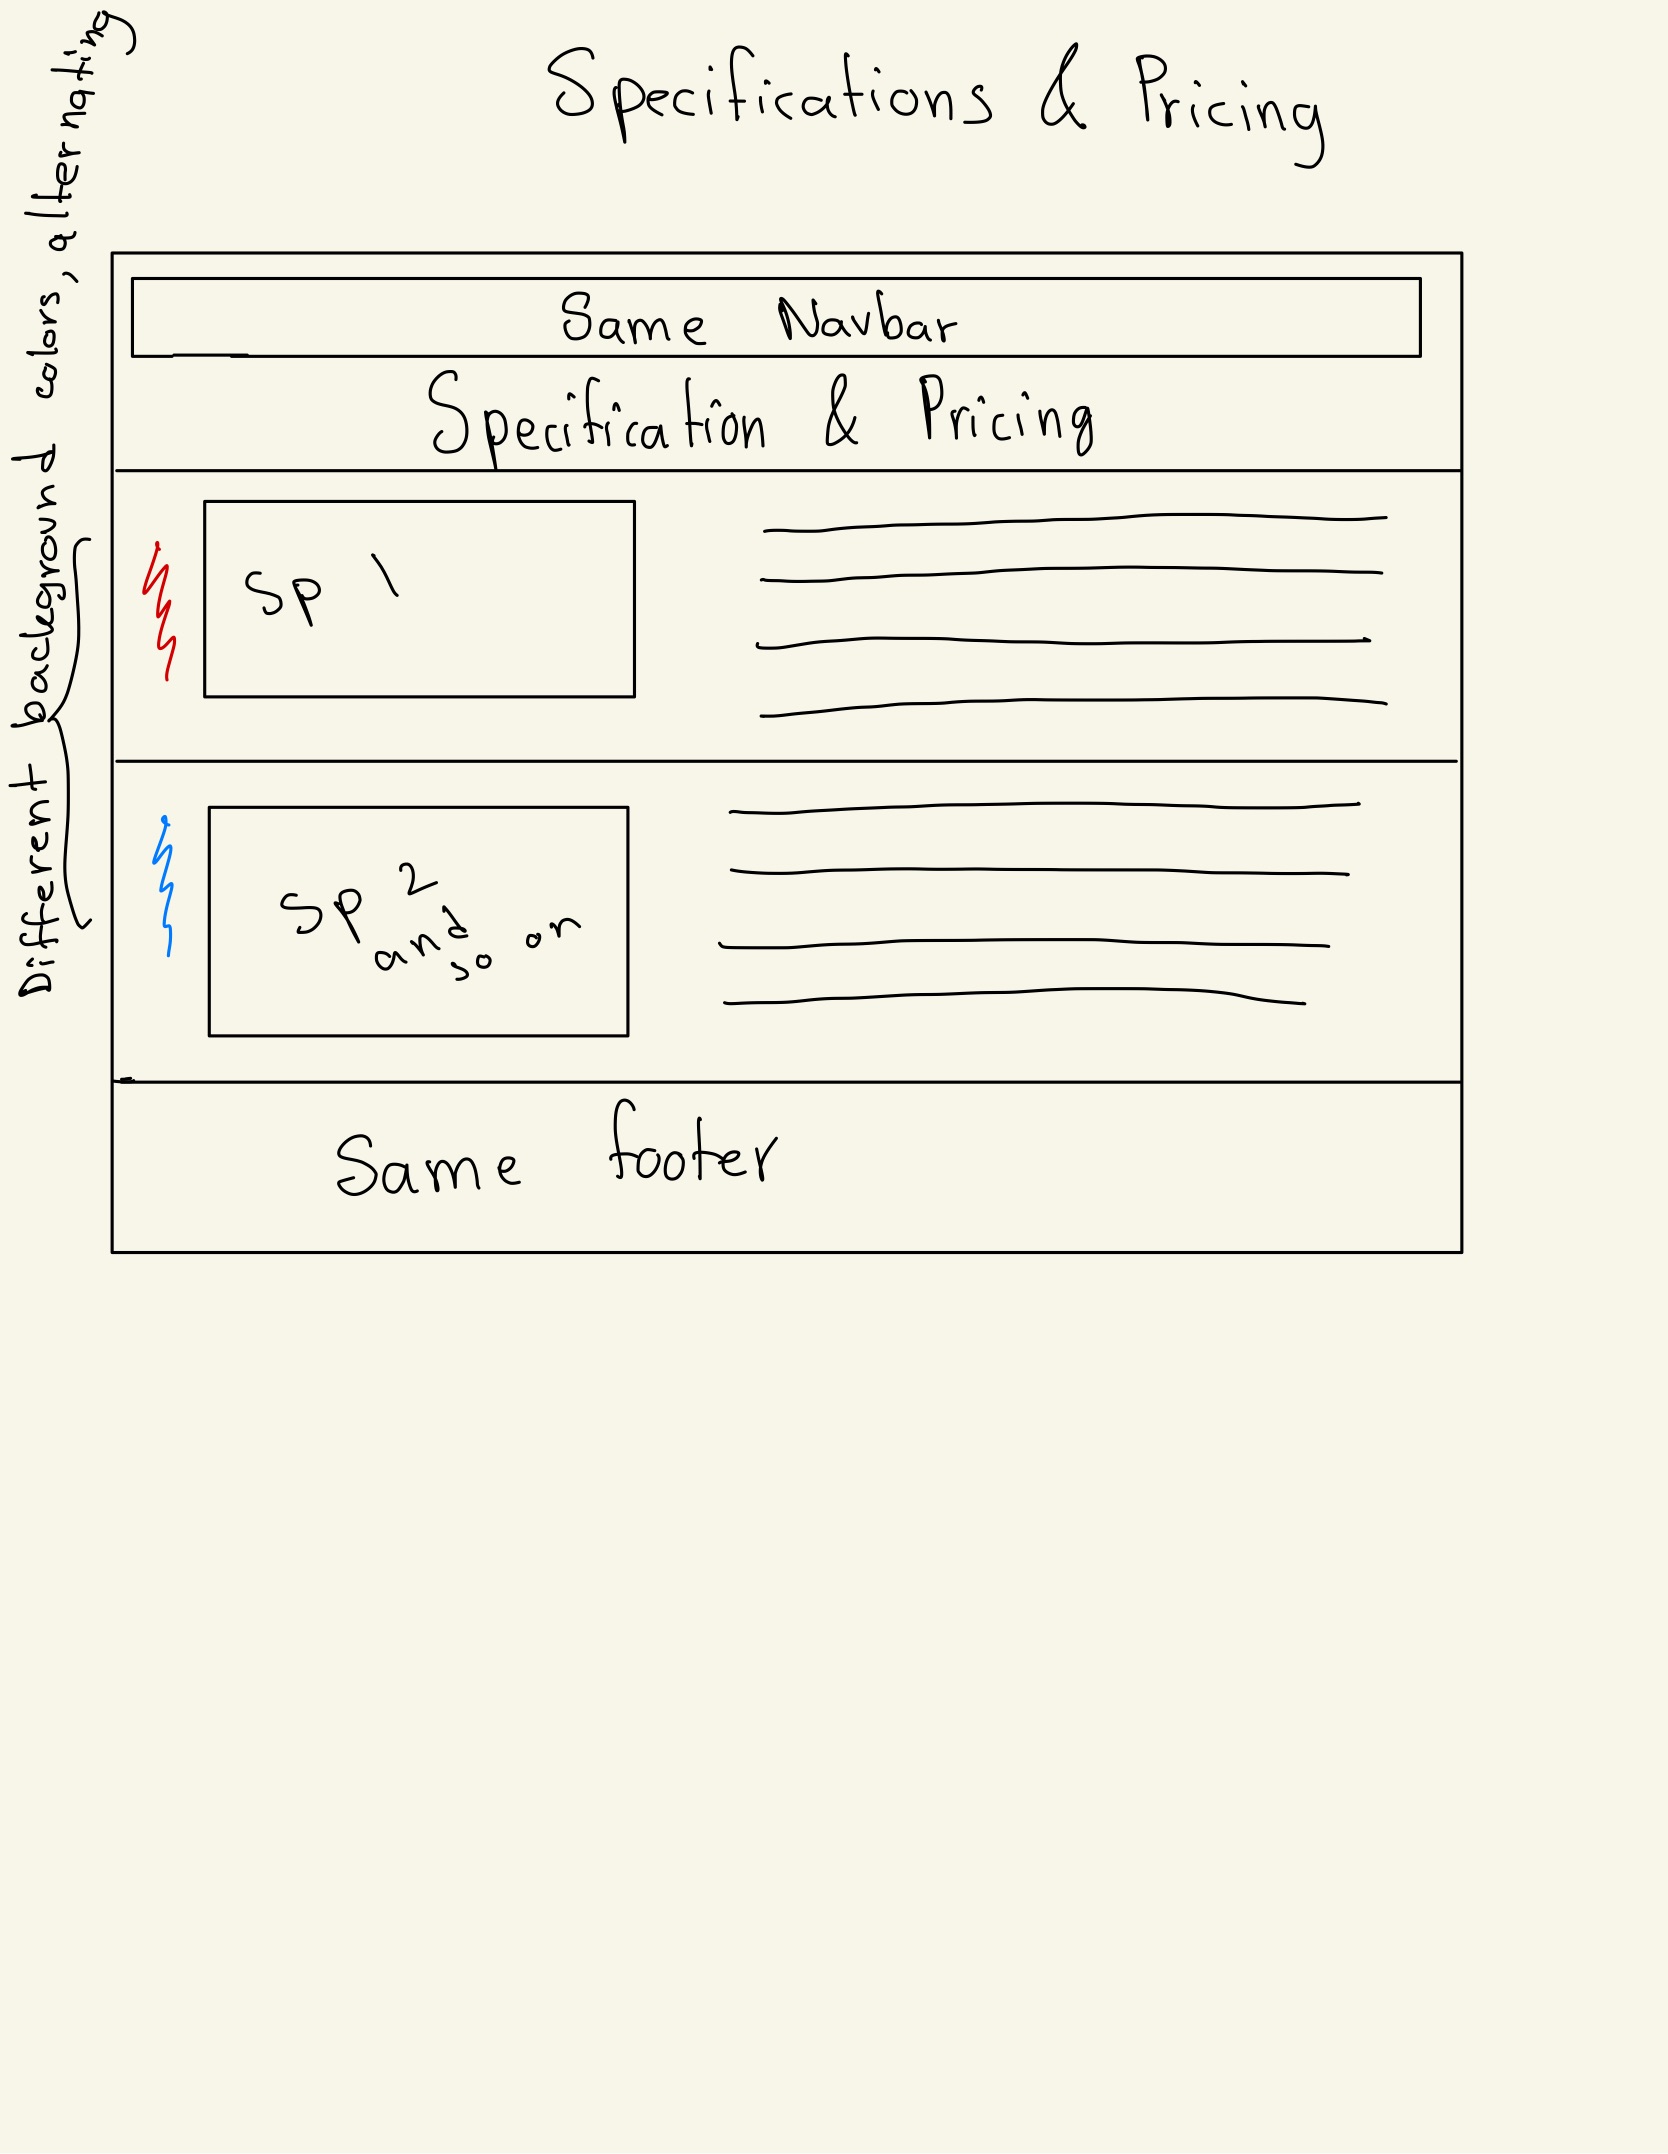 Specifications & Pricing
Different background colors, alternating
Same Navbar
Specification & Pricing
Sp 1
Sp 2
and
so on
Same footer